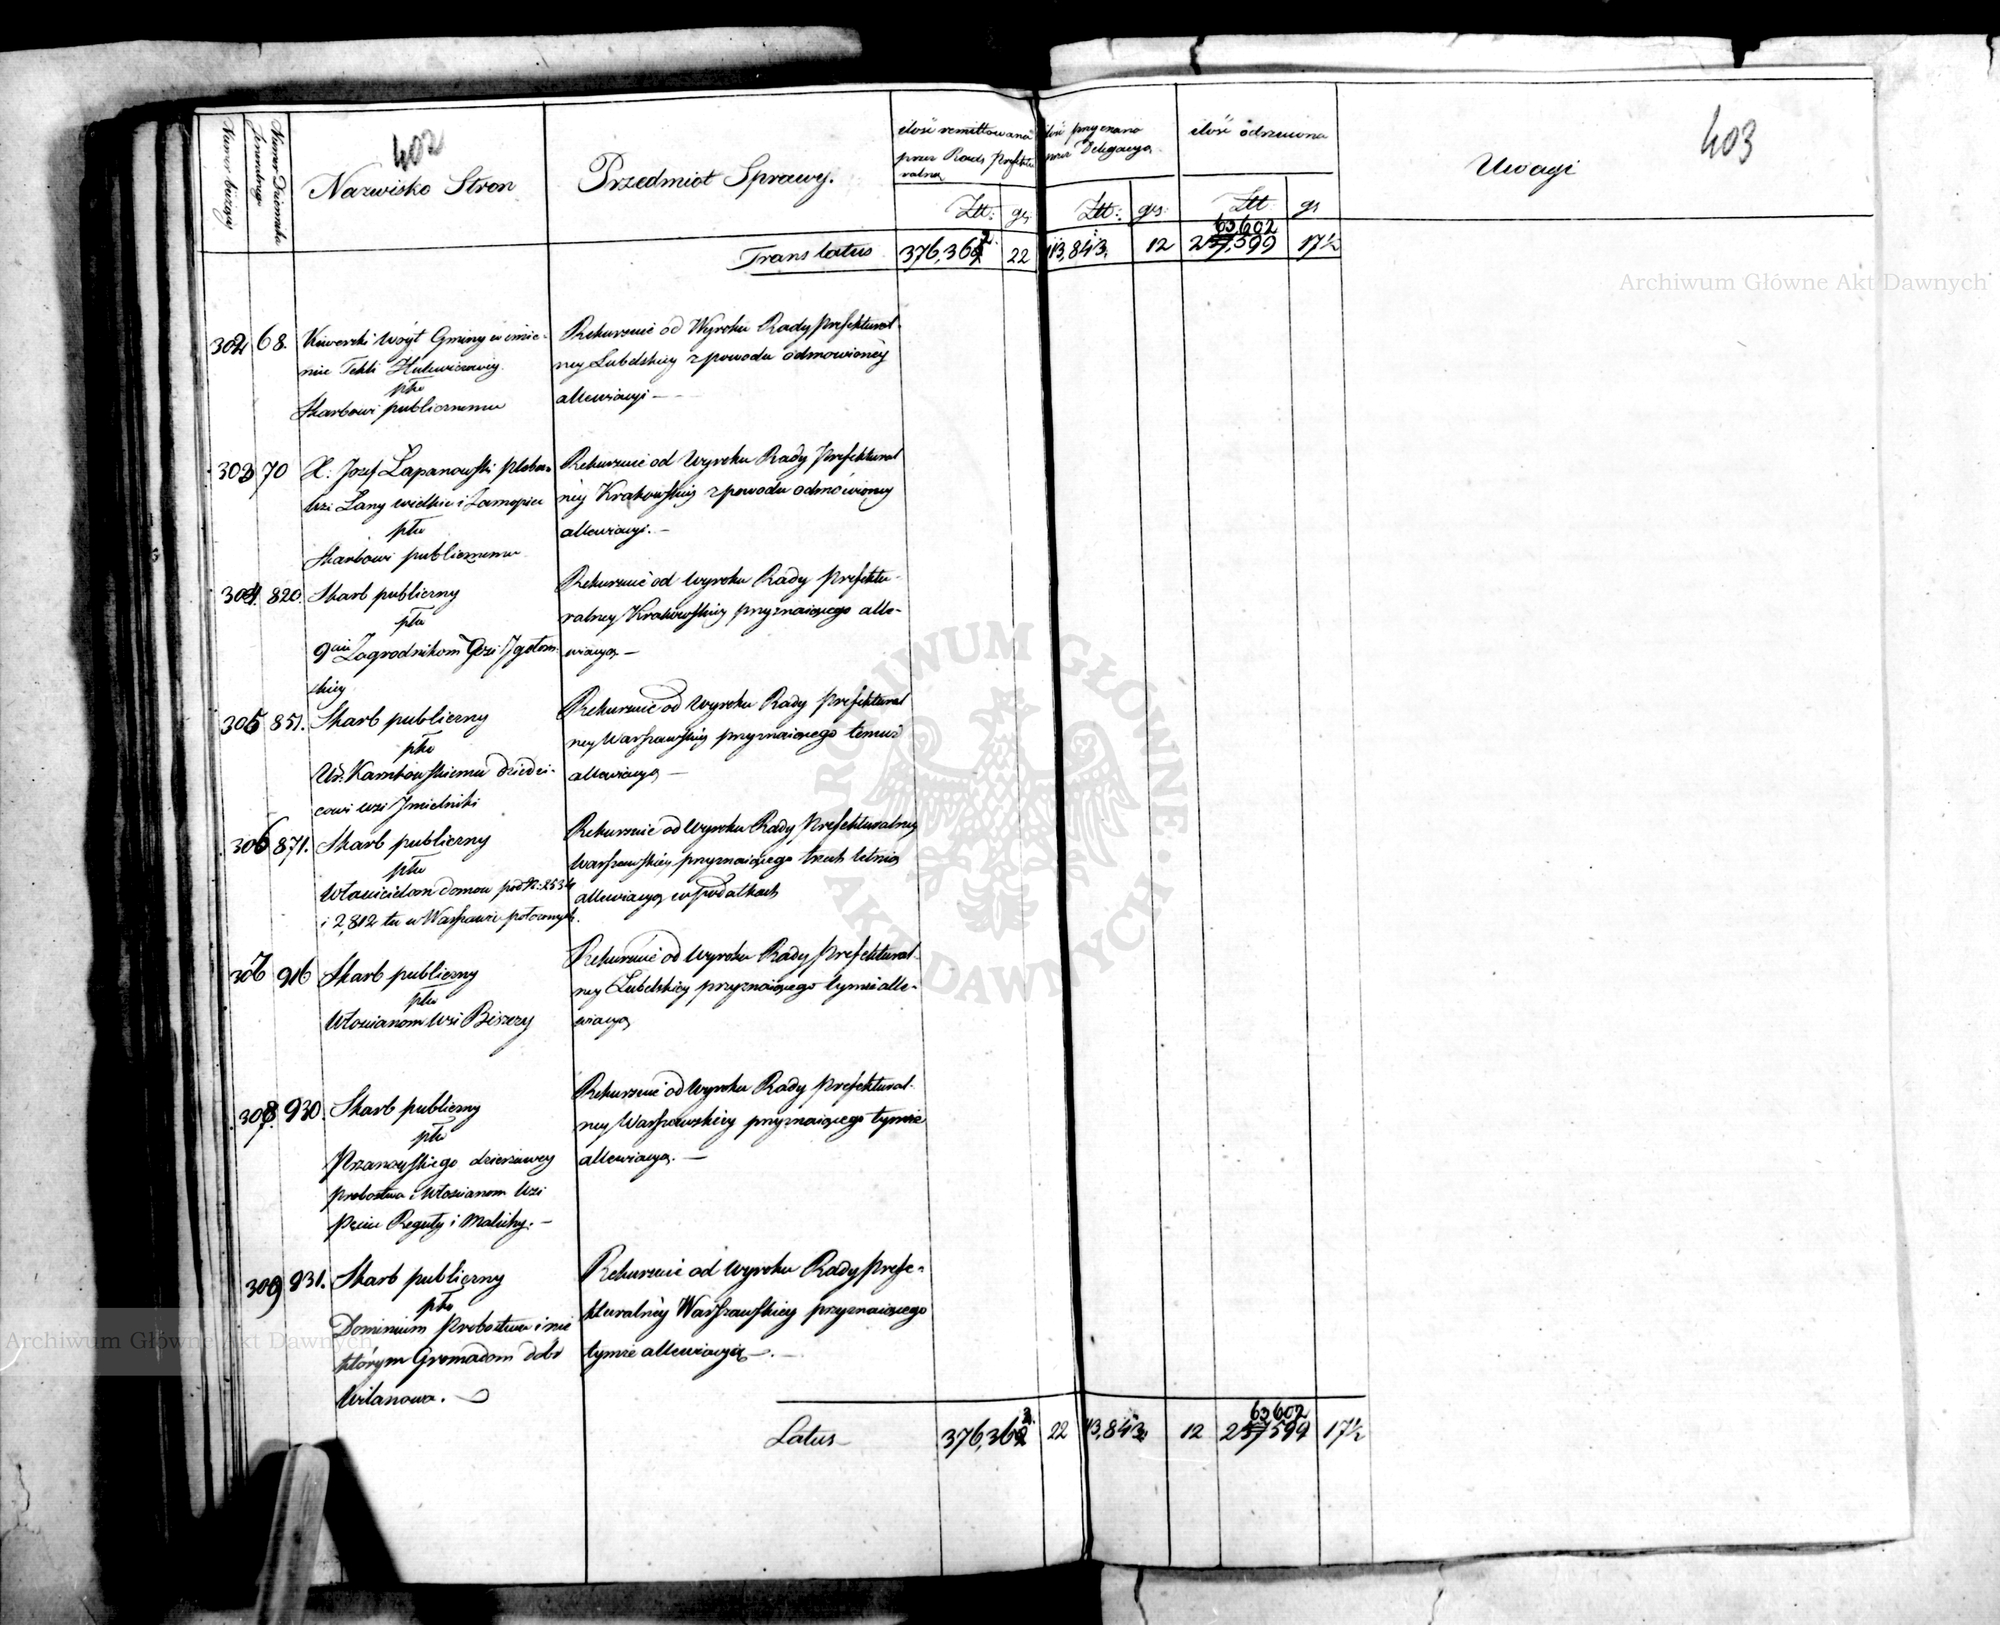 402
403
Numer bieżący
Numer Dziennika
Jeneralnego
Nazwisko Stron
Przedmiot Sprawy.
ilość remittowana
przez Radę Prefektu
ralną
ilość przyznana
przez Delegacyą
ilość odrzucona
Uwagi
Złt: gr:
Złt: grs:
Złt gr
Translatus 376,362 22 113,843. 12 63,602 17½
302 68. Wóyt Gminy w imie-
nie Tekli
pko
Skarbowi publicznemu
Rekurs od Wyroku Rady Prefektural-
ney Lubelskiey z powodu odmówioney
allewiacyi —
303 70 X: Jozef Łapanowski Pleban
Wsi Łany wielkie i
pko
Skarbowi publicznemu
od Wyroku Rady Prefektural
ney Krakowskiey z powodu odmówioney
allewiacyi. —
304. 820. Skarb publiczny
pko
9ciu Zagrodnikom Wsi Igołom-
skiey
od Wyroku Rady Prefektu-
ralney Krakowskiey przyznaiącego alle-
wiacyą —
305 851. Skarb publiczny
pko
Ur. Kambowskiemu Dziedzi-
cowi wsi Imielniki
od Wyroku Rady Prefektural
ney Warszawskiey przyznaiącego temuż
allewiacyą —
306 871. Skarb publiczny
pko
Właścicielom domow pod N: 2534
i 2,812 tu w Warszawie położonych.
od Wyroku Rady Prefekturalney
Warszawskiey przyznaiącego trzech letnią
allewiacyą w podatkach
307 916 Skarb publiczny
pko
Włościanom Wsi Biszczy
od Wyroku Rady Prefektural-
ney Lubelskiey przyznaiącego tymże alle-
wiacyą
308 930. Skarb publiczny
pko
dzierżawcy
probostwa i Włościanom Wsi
Pęcice Reguły i Malichy. —
od Wyroku Rady Prefektural-
ney Warszawskiey przyznaiącego tymże
allewiacyą. —
309 931. Skarb publiczny
pko
Dominium Probostwu i nie
którym Gromadom dóbr
Wilanowa.
od Wyroku Rady Prefe-
kturalney Warszawskiey przyznaiącego
tymże allewiacyią —.
Latus 376,362 22 113,843. 12 63 602 17½
Archiwum Główne Akt Dawnych
Archiwum Główne Akt Dawnych
ARCHIWUM GŁÓWNE AKT DAWNYCH